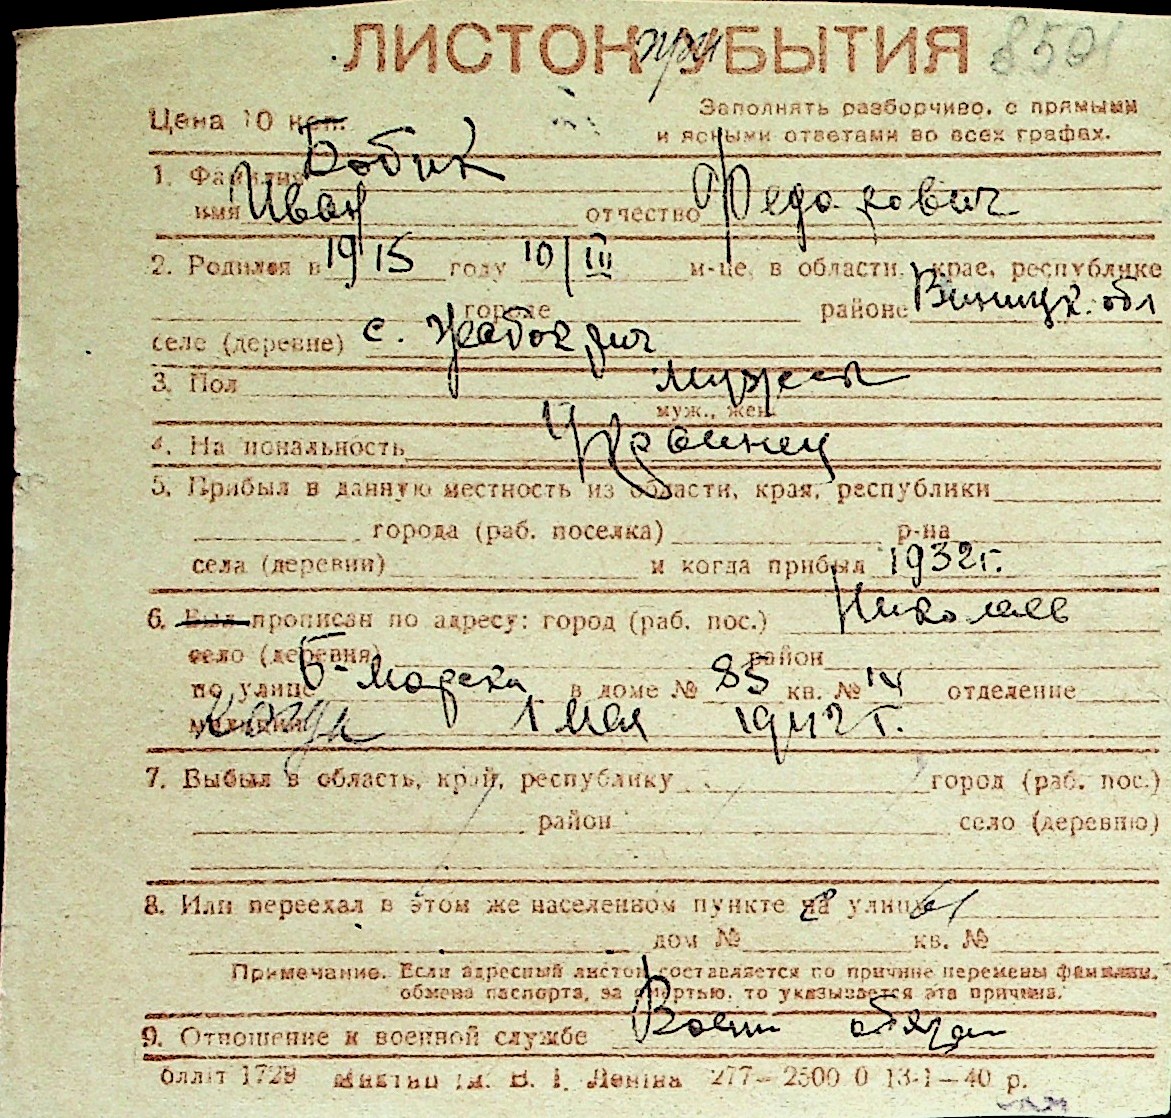 ЛИСТОК при УБЫТИЯ 8501
Цена 10 коп.
Заполнять разборчиво, с прямыми
и ясными ответами во всех графах.
1. Фамилия Бобик
имя Иван отчество Федорович
2. Родился в 1915 году 10/III м-це, в области, крае, республике
городе районе Виницк. обл
селе (деревне) с. Жабокрич
3. Пол мужск
муж., жен.
4. Национальность Украинец
5. Прибыл в данную местность из области, края, республики
города (раб. поселка) р-на
села (деревни) и когда прибыл 1932 г.
6. Был прописан по адресу: город (раб. пос.) Николаев
село (деревня) район
по улице Б-Морска в доме № 85 кв. № 14 отделение
милиции когда 1 мая 1942 г.
7. Выбыл в область, край, республику город (раб. пос.)
район село (деревню)
8. Или переехал в этом же населенном пункте на улицу
дом № кв. №
Примечание. Если адресный листок составляется по причине перемены фамилии,
обмена паспорта, за смертью, то указывается эта причина.
9. Отношение к военной службе Воен обязан
1729 В. І. Леніна 277—2500 0 13-1—40 р.